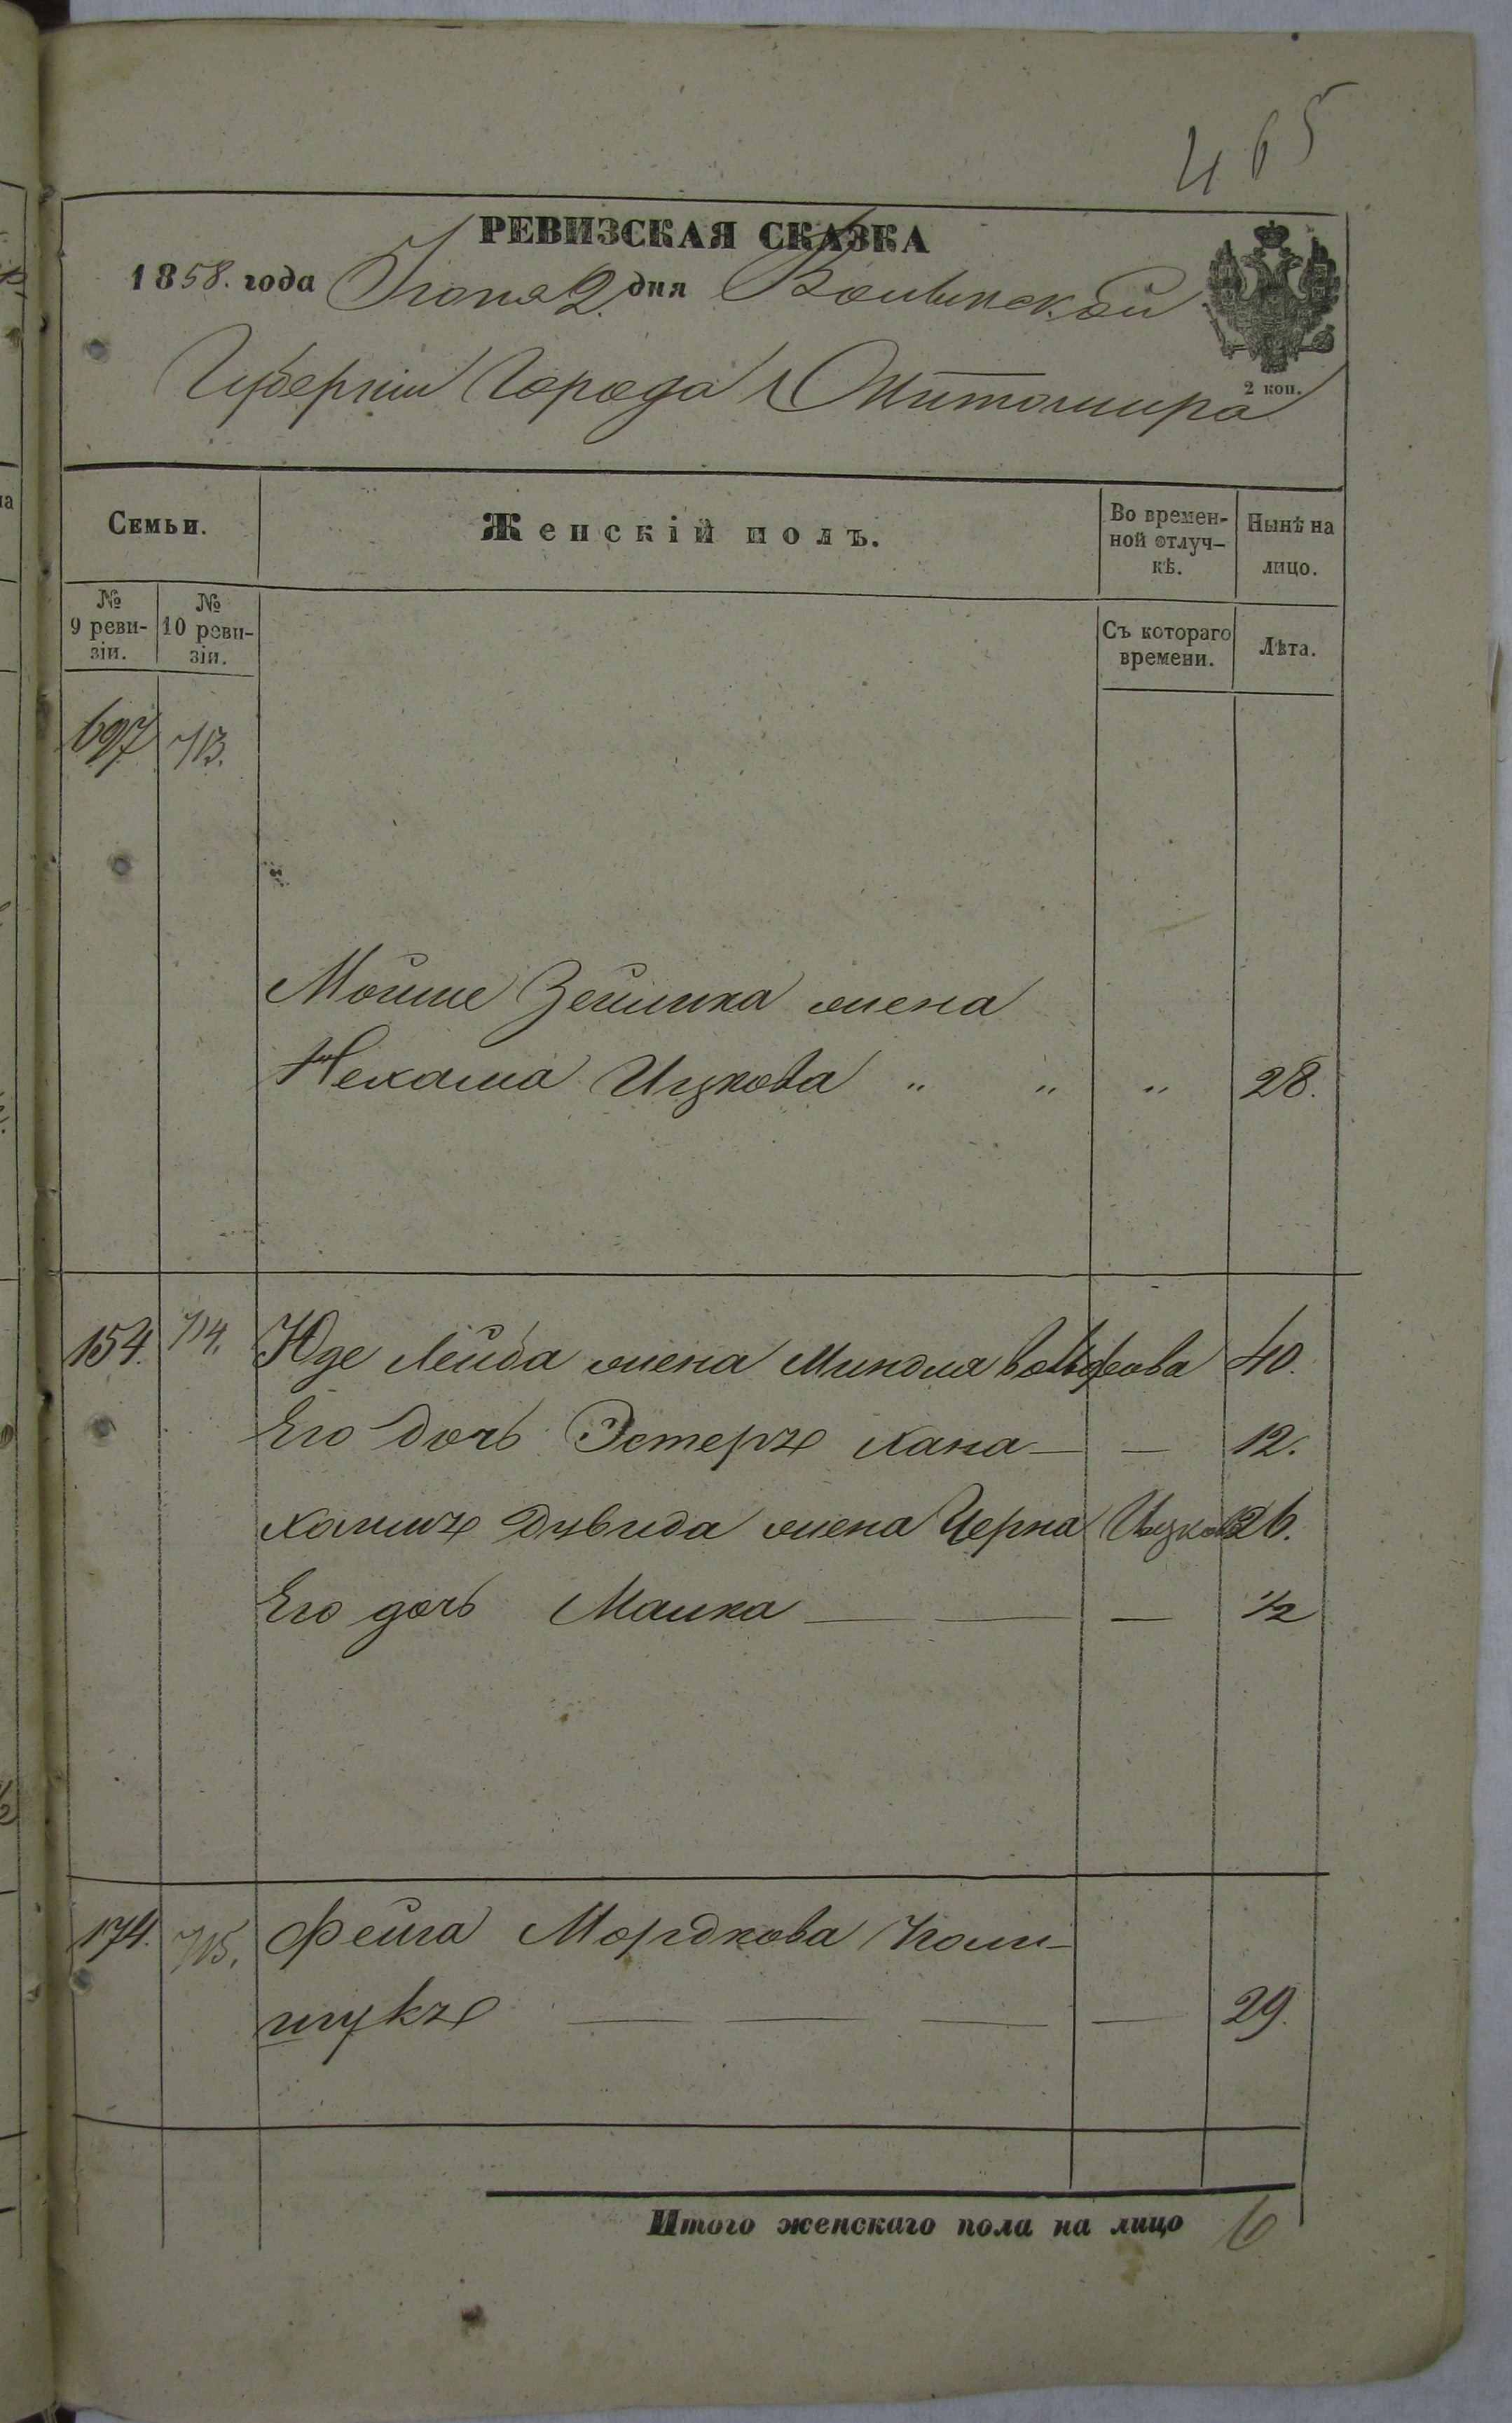 465
РЕВИЗСКАЯ СКАЗКА
1858. года Июня 2. дня Волынской
Губернии Города Житомира
2 коп.
Семьи.
Женскій полъ.
Во времен-
ной отлуч-
кѣ.
Нынѣ на
лицо.
№
9 реви-
зіи.
№
10 реви-
зіи.
Съ котораго
времени.
Лѣта.
697 713.
Мойше Зейлика жена
Нехама Ицкова " " " 28.
154. 714. Юде Лейба жена Миндля Вольфова 40.
Его дочь Эстеръ Хана — — 12.
Хаимъ Дувида жена Черна Ицкова 26.
Его дочь Малка — — — 1/2
174. 715. Фейга Мордкова Поли-
щукъ — — — — 29.
Итого женскаго пола на лицо 6